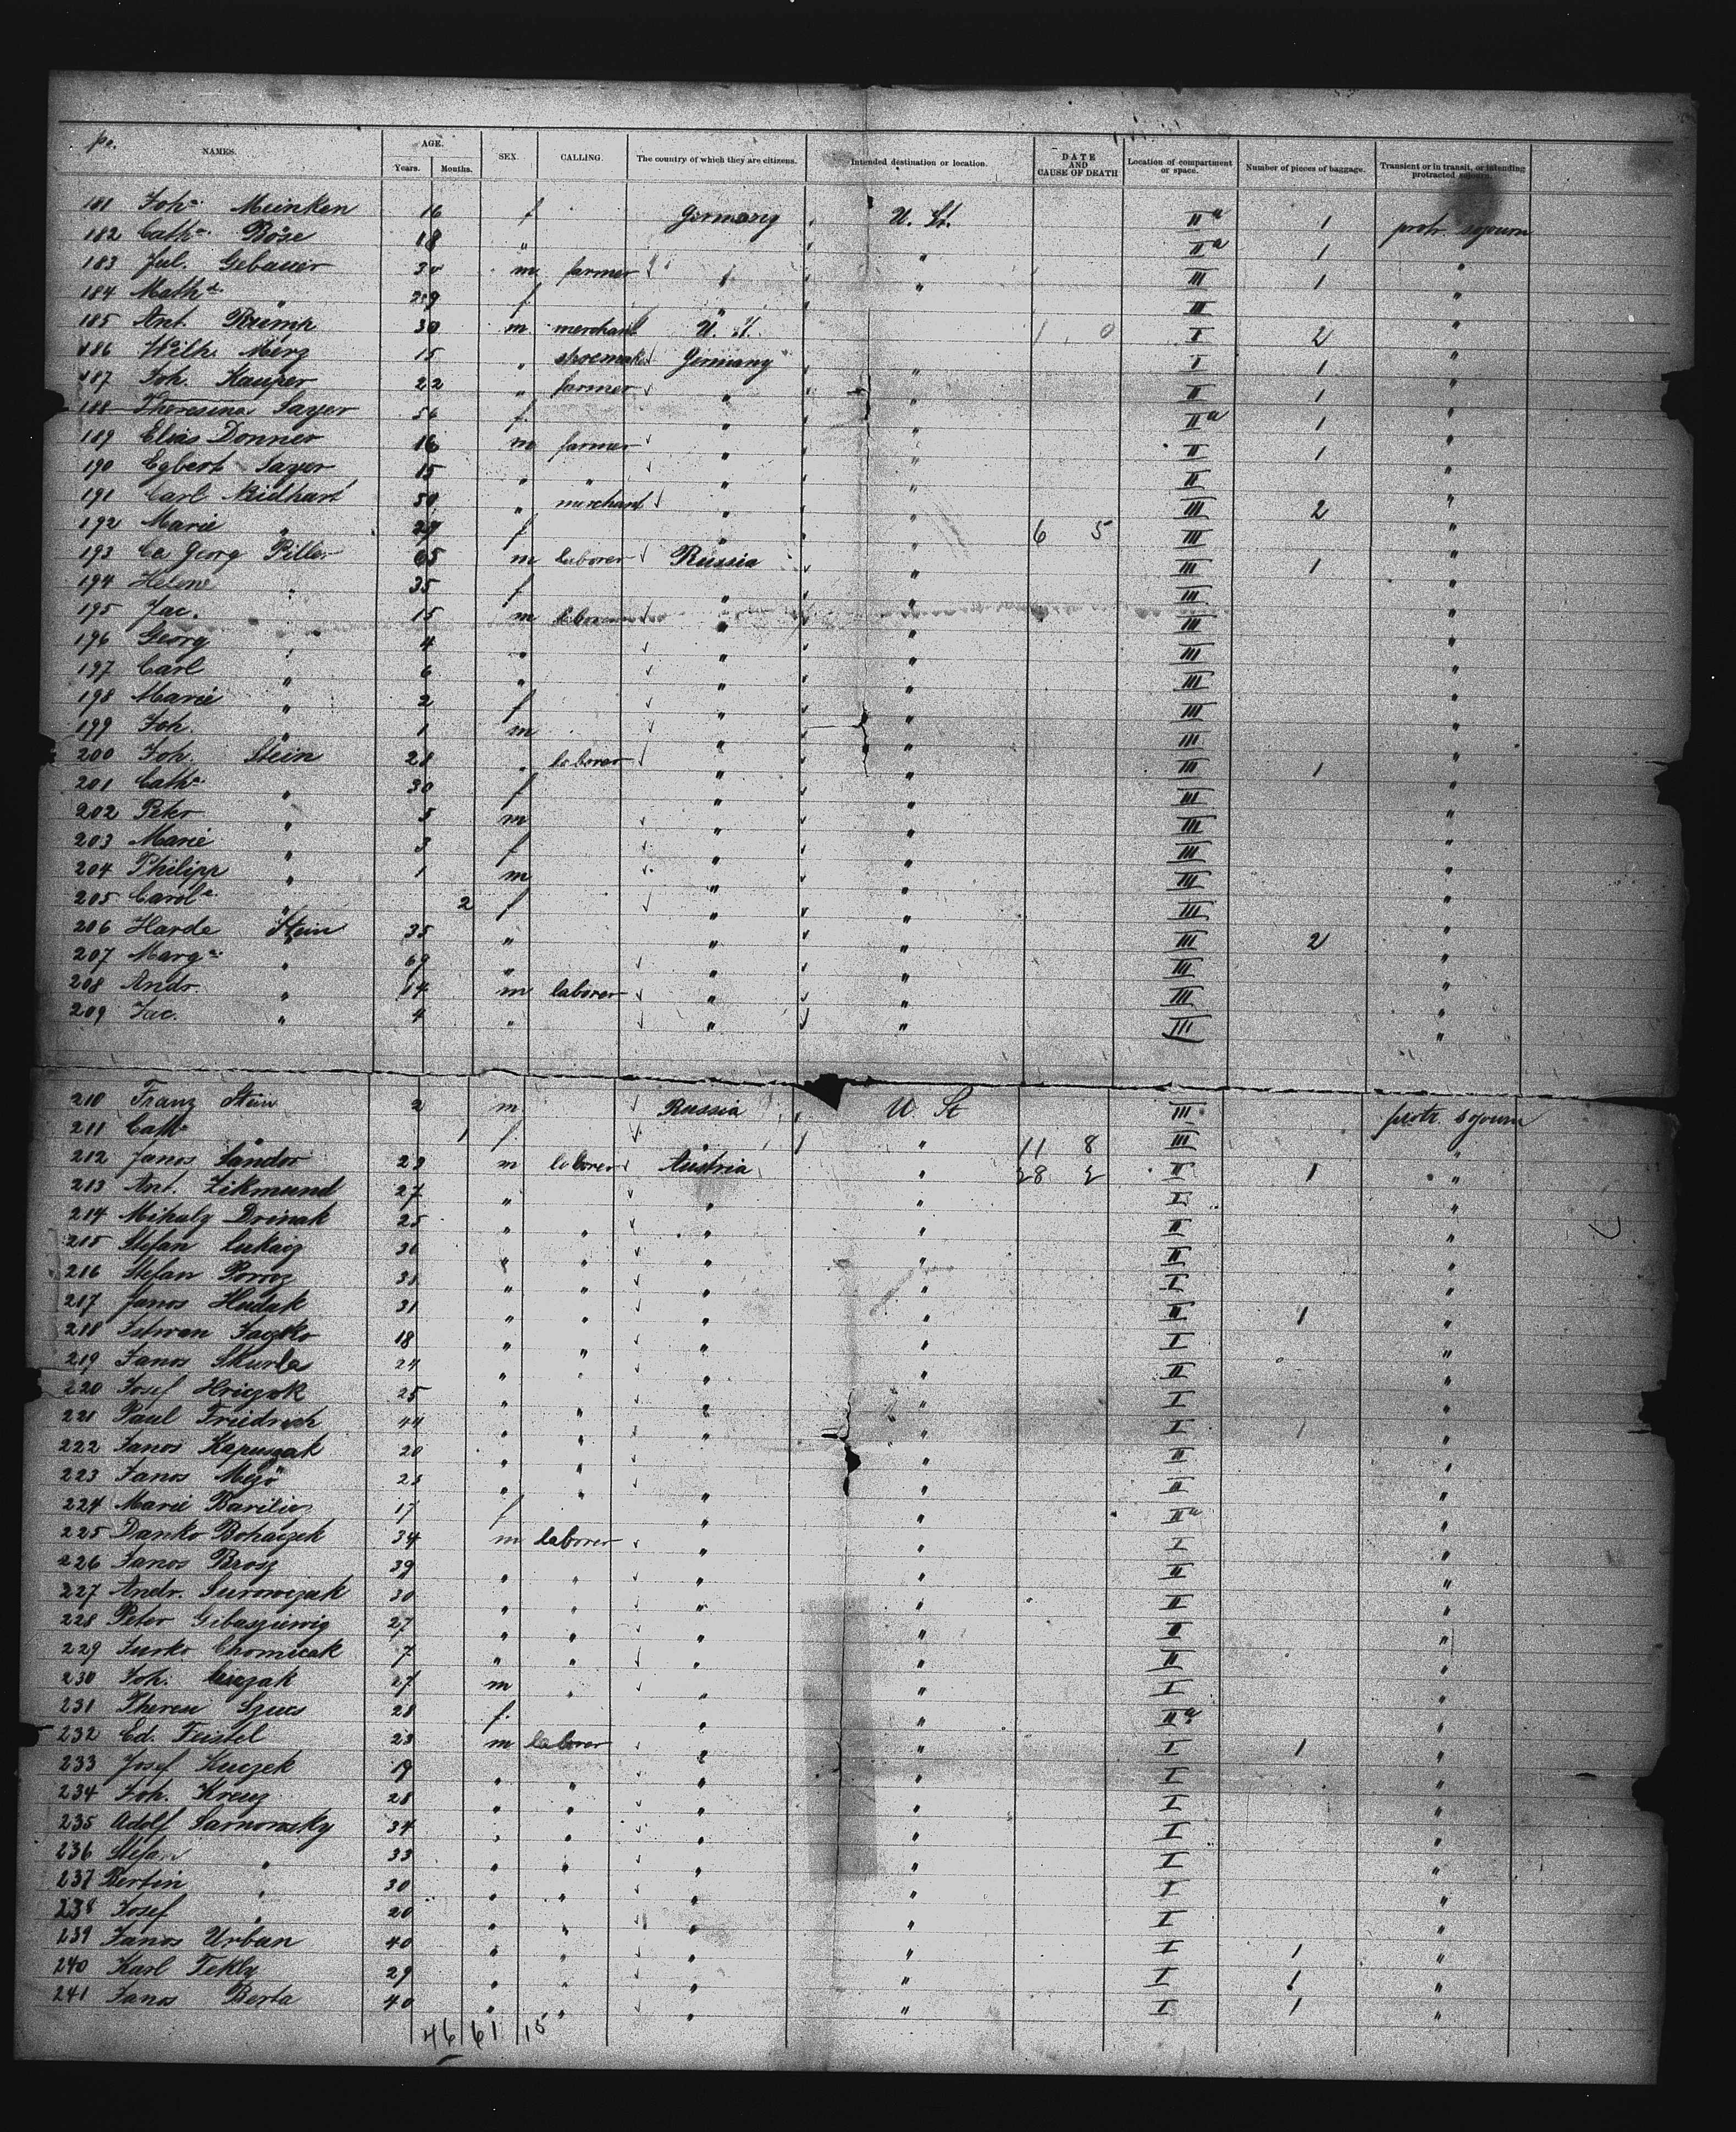 No. NAMES. AGE. Years. Months. SEX. CALLING. The country of which they are citizens. Intended destination or location. DATE AND CAUSE OF DEATH Location of compartment or space. Number of pieces of baggage. Transient or in transit, or intending protracted sojourn.
181 Joh.a Meinken 16 f Germany U. St. IIa 1 protr. sojourn
182 Cath.a Röse 18 " " IIa 1 "
183 Jul. Gebauer 34 m farmer " " III 1 "
184 Math.d " 29 f " III "
185 Ant. Rump 30 m merchant U. St. 1 0 I 2 "
186 Wilh. Merz 15 " shoemaker Germany " I 1 "
187 Joh. Kauper 22 " farmer " " II 1 "
188 Theresina Sayer 56 f " " IIa 1 "
189 Elias Donner 16 m farmer " " II 1 "
190 Egbert Sayer 15 " " " " II "
191 Carl Neidhart 50 " merchant " " III 2 "
192 Marie " 29 f " " 6 5 III "
193 Georg Piller 65 m laborer Russia " III 1 "
194 Helene " 35 f " " III "
195 Jac. " 15 m laborer " " III "
196 Georg " 4 " " " III "
197 Carl " 6 " " " III "
198 Marie " 2 f " " III "
199 Joh. " 1 m " " III "
200 Joh. Stein 28 " laborer " " III 1 "
201 Cath.a " 30 f " " III "
202 Peter " 5 m " " III "
203 Marie " 3 f " " III "
204 Philipp " 1 m " " III "
205 Carol.e " 2 f " " III "
206 Harde Stein 35 " " " III 2 "
207 Marg.a " 69 " " " III "
208 Andr. " 14 m laborer " " III "
209 Jac. " 4 " " " III "
210 Franz Stein 2 m Russia U. St III protr. sojourn
211 Cath.a " 1 f " " 11 8 III "
212 Janos Sandor 29 m laborer Austria " 28 2 II 1 "
213 Ant. Zikmund 27 " " " I "
214 Mihaly Drinak 25 " " " " II "
215 Stefan Lukacz 30 " " " " II "
216 Stefan Porocz " " " " I "
217 Janos Hudak 31 " " " " II 1 "
218 Istvan Jaczko 18 " " " " I "
219 Janos Skurla 24 " " " " II "
220 Josef Hriczok 25 " " " " I "
221 Paul Friedrich 44 " " " " I 1 "
222 Janos Kapuszak 20 " " " II "
223 Janos Mezö " " " " II "
224 Marie Barilicz 17 f " " IIa "
225 Danko Bohaczek 34 m laborer " " I "
226 Janos Brosz 39 " " " " II "
227 Andr. Surowczak 30 " " " " II "
228 Peter Gibasziewicz 27 " " " " II "
229 Jurko Chomicak 7 " " " " II "
230 Joh. 27 m " " " I "
231 Therese Szucs 28 f " " IIa "
232 Ed. Feistel 23 m laborer " " I 1 "
233 Josef Kuczek 19 " " " " I "
234 Joh. Kreuz 28 " " " " I "
235 Adolf Sarnowsky 34 " " " " I "
236 Stefan " 33 " " " " I "
237 Bertin " 30 " " " " I "
238 Josef " 20 " " " " I "
239 Janos Urban 40 " " " " I 1 "
240 Karl Tekly 29 " " " " I 1 "
241 Janos Berta 40 " " " " I 1 "
46 61 15